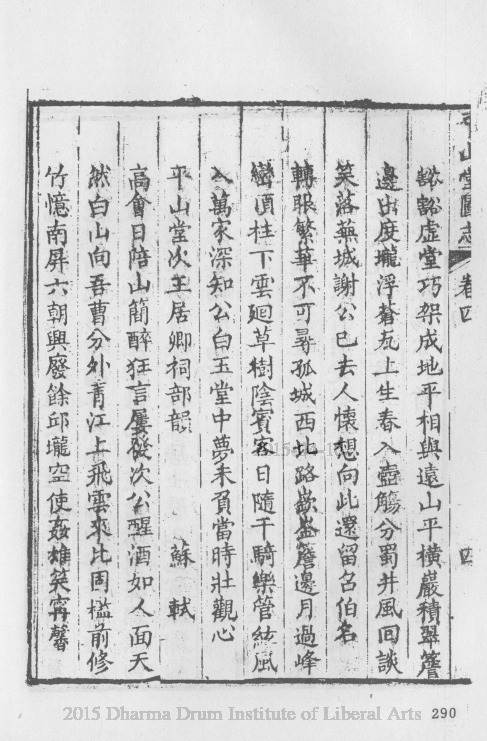 平山堂圖志 卷四 四
豁豁虛堂巧架成地平相與遠山平橫巖積翠簷
邊出度壠浮蒼瓦上生春入壺觴分蜀井風回談
笑落蕪城謝公已去人懷想向此還留召伯名
轉眼繁華不可尋孤城西北路嶔盎簷邊月過峰
巒頂柱下雲廻草樹陰賓客日隨千騎樂管絃風
入萬家深知公白玉堂中夢未負當時壯觀心
平山堂次王居卿祠部韻 蘇軾
高會日陪山簡醉狂言屢發次公醒酒如人面天
然白山向吾曹分外青江上飛雲來比固檻前修
竹憶南屏六朝興廢餘邱壠空使姦雄笑甯馨
2015 Dharma Drum Institute of Liberal Arts 290